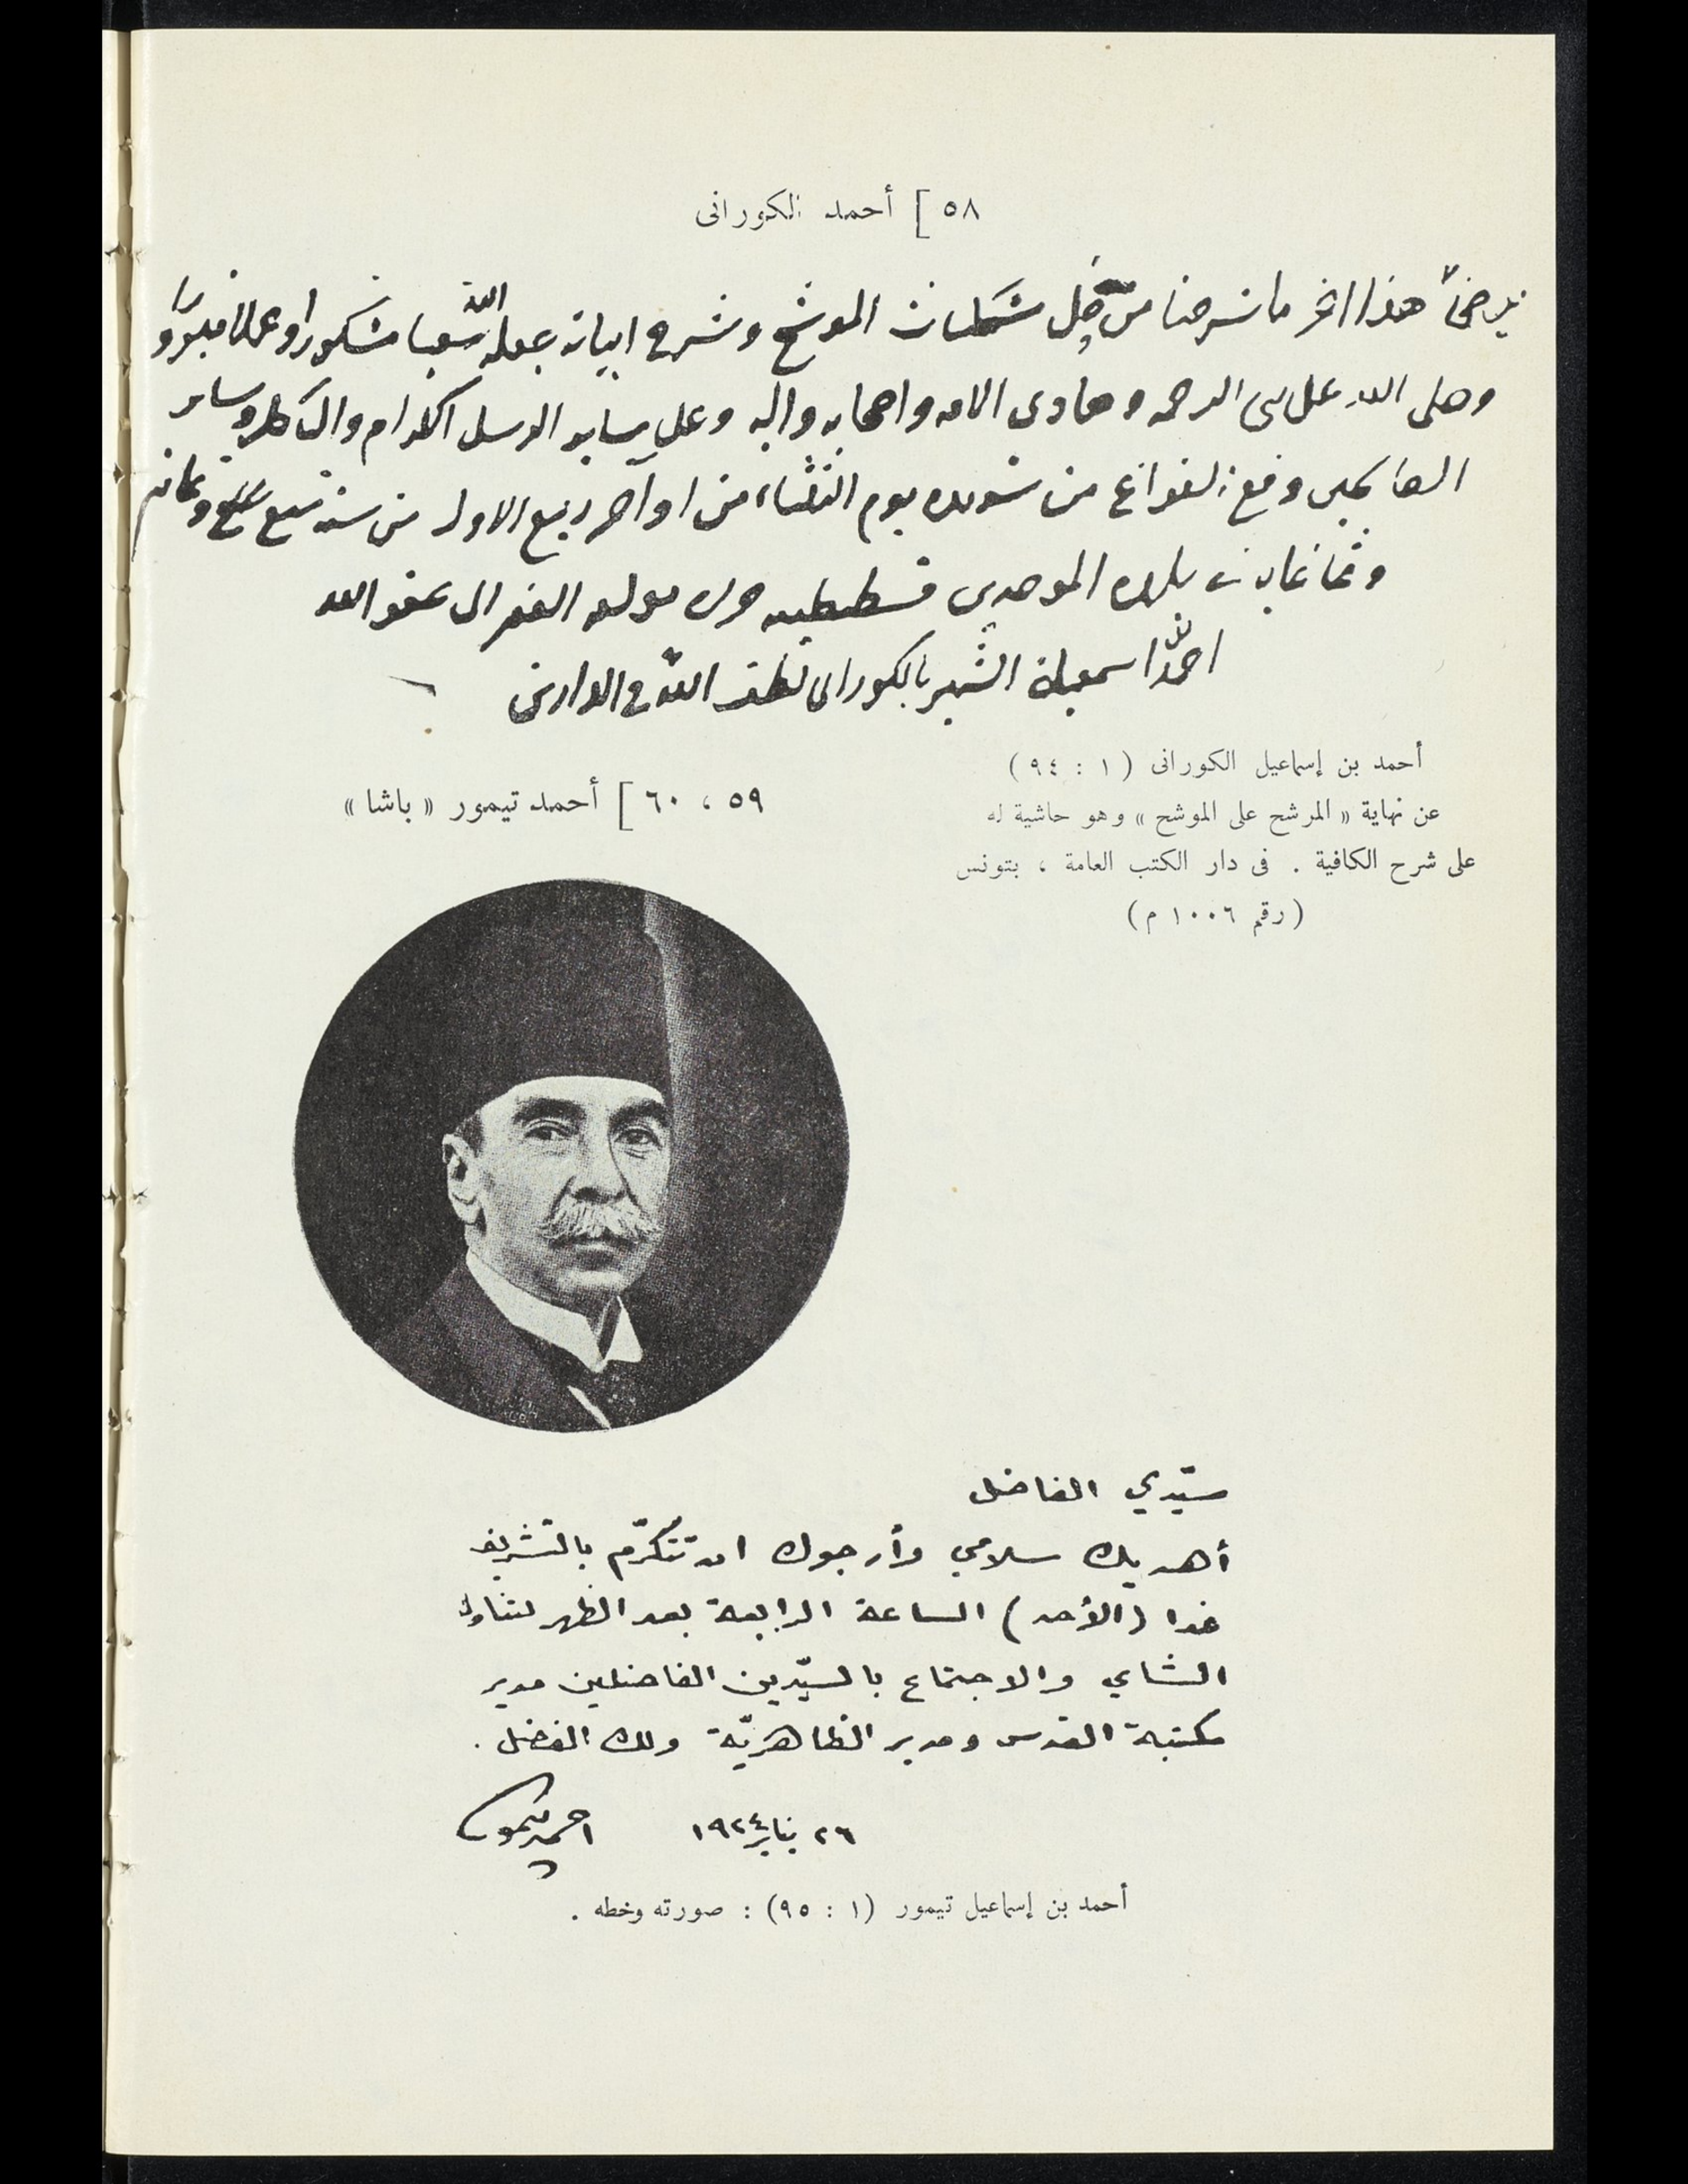 ٥٨ ] أحمد الكورانى
هذا اخر ما شرحنا من حل مشكلات الموشح وشرح ابياته جعله الله سعيا مشكورا وعملا مبرورا
وصلى الله على نبى الرحمه وهادى الامه واصحابه واله وعلى ساير الرسل الكرام وسائر
الصالحين وقع الفراغ من تسويده يوم الثلثاء من اواخر ربيع الاول من سنة سبع
وثمانمايه ببلده الموحدين قسطنطينيه مولفه الفقير الى عفو الله
احمد بن اسمعيل الشهير بالكورانى لطف الله فى الدارين
أحمد بن إسماعيل الكورانى ( ١ : ٩٤ )
عن نهاية « المرشح على الموشح » وهو حاشية له
على شرح الكافية . فى دار الكتب العامة ، بتونس
( رقم ١٠٠٦ م )
٥٩ ، ٦٠ ] أحمد تيمور « باشا »
سيّدي الفاضل
أهديك سلامي وأرجوك ان تتكرّم بالتشريف
غدا (الأحد) الساعة الرابعة بعد الظهر لتناول
الشاي والاجتماع بالسيّدين الفاضلين مدير
مكتبة القدس ومدير الظاهريّة ولك الفضل .
٢٦ يناير ١٩٢٤ احمد تيمور
أحمد بن إسماعيل تيمور (١ : ٩٥) : صورته وخطه .